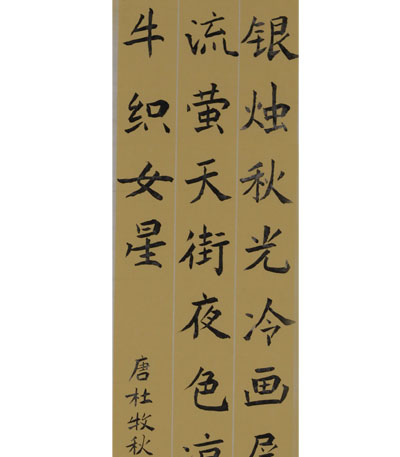 银烛秋光冷画屏
流萤天街夜色凉
牛织女星
唐杜牧秋